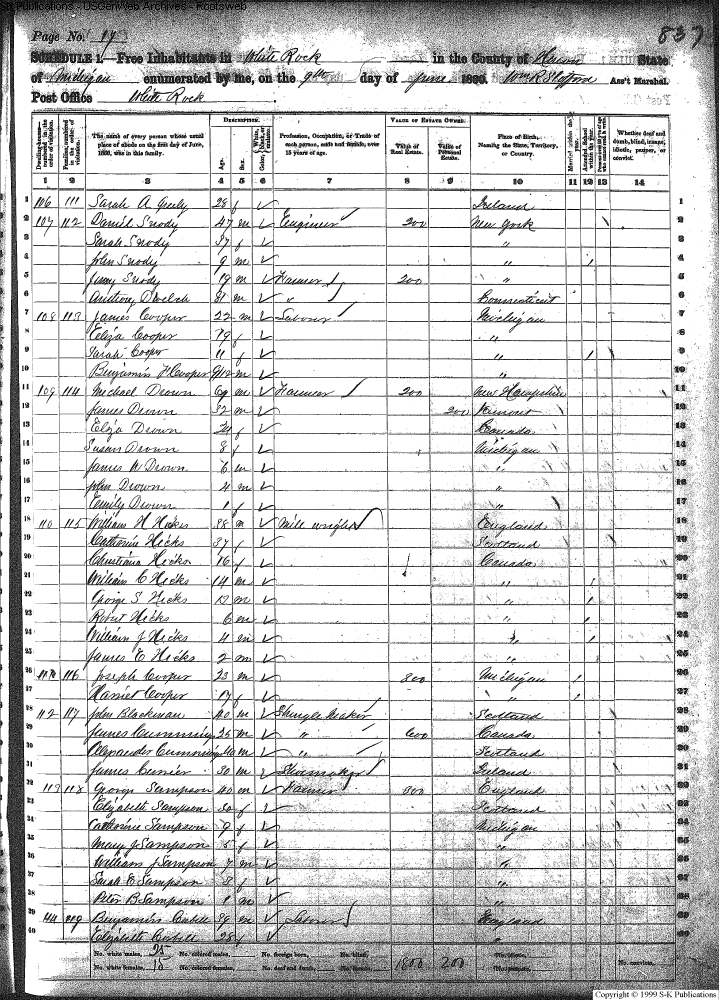 S-K Publications - USGenWeb Archives - Rootsweb
Page No. 14 837
SCHEDULE 1.—Free Inhabitants in White Rock in the County of Huron State
of Michigan enumerated by me, on the 9th day of June 1860. Wm R. Stafford Ass't Marshal.
Post Office White Rock
DESCRIPTION. VALUE OF ESTATE OWNED.
Dwelling-houses—numbered in the order of visitation. Families numbered in the order of visitation. The name of every person whose usual place of abode on the first day of June, 1860, was in this family. Age. Sex. Color, White, black, or mulatto. Profession, Occupation, or Trade of each person, male and female, over 15 years of age. Value of Real Estate. Value of Personal Estate. Place of Birth, Naming the State, Territory, or Country. Married within the year. Attended School within the year. Whether deaf and dumb, blind, insane, idiotic, pauper, or convict.
1 2 3 4 5 6 7 8 9 10 11 12 13 14
1 106 111 Sarah A 28 f Ireland 1
2 107 112 Daniel Snody 47 m Engineer 200 New York 2
3 Sarah Snody 37 f " 3
4 John Snody 9 m " 4
5 Snody 19 m Farmer 200 " 5
6 m " Connecticut 6
7 108 113 James Cooper 22 m Labour Michigan 7
8 Eliza Cooper 19 f " 8
9 Sarah Cooper 11 f " 9
10 Benjamin H Cooper 9/12 m " 10
11 109 114 Michael Drown 69 m Farmer 200 New Hampshire 11
12 James Drown 32 m 200 Vermont 12
13 Eliza Drown 24 f Canada 13
14 Susan Drown 8 f Michigan 14
15 James W Drown 6 m " 15
16 John Drown 4 m " 16
17 Emily Drown 1 f " 17
18 110 115 William H Hicks 38 m Mill wright England 18
19 Catherine Hicks 37 f Scotland 19
20 Christiana Hicks 16 f Canada 20
21 William C Hicks 14 m " 21
22 George S Hicks 12 m " 22
23 Robert Hicks 6 m " 23
24 William J Hicks 4 m " 24
25 James E Hicks 2 m " 25
26 111 116 Joseph Cooper 23 m 800 Michigan 26
27 Harriet Cooper 17 f " 27
28 112 117 John Blackman 40 m Shingle Maker Scotland 28
29 James Cumming 35 m " 600 Canada 29
30 Alexander Cumming 40 m " Scotland 30
31 James 30 m Shoemaker Ireland 31
32 113 118 George Sampson 40 m Farmer England 32
33 Elizabeth Sampson 30 f Scotland 33
34 Catherine Sampson 9 f Michigan 34
35 Mary J Sampson 5 f " 35
36 William J Sampson 7 m " 36
37 Sarah E Sampson 3 f " 37
38 Peter B Sampson 1 m " 38
39 114 119 Benjamin 38 m Labour England 39
40 Elizabeth 28 f " 40
No. white males, 25 No. colored males, No. foreign born, No. blind, No. idiotic,
No. white females, 15 No. colored females, No. deaf and dumb, No. insane, 1800 200 No. paupers, No. convicts,
Copyright © 1999 S-K Publications